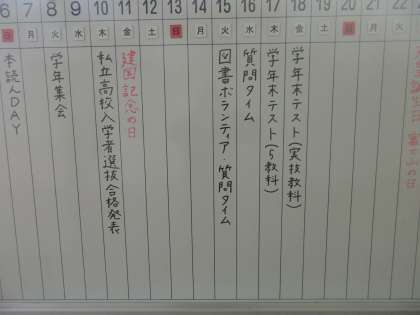 6 7 8 9 10 11 12 13 14 15 16 17 18 19 20 21 22
日 月 火 水 木 金 土 日 月 火 水 木 金 土 日 月 火
本読んDAY
学年集会
私立高校入学者選抜合格発表
建国記念の日
図書ボランティア・質問タイム
質問タイム
学年末テスト(5教科)
学年末テスト(実技教科)